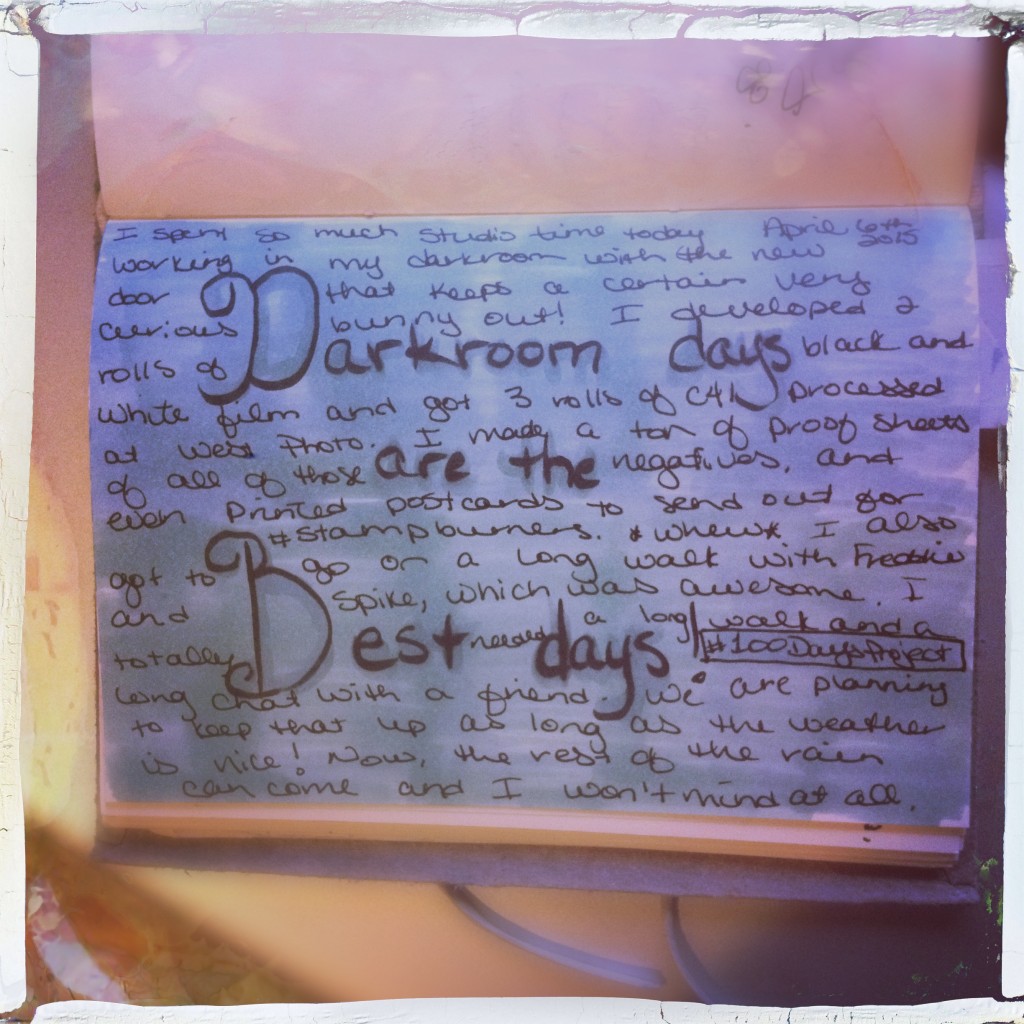 I spent so much studio time today April 6th
2015
working in my darkroom with the new
door that keeps a certain very
curious bunny out! I developed 2
rolls of Darkroom days black and
white film and got 3 rolls of C41 processed
at West Photo. I made a ton of proof sheets
of all of those are the negatives, and
even printed postcards to send out for
#stampburners. *whew* I also
got to go on a long walk with Freddie
and Spike, which was awesome. I
totally Best needed days a long walk and a
#100DaysProject
long chat with a friend. We are planning
to keep that up as long as the weather
is nice! Now, the rest of the rain
can come and I won't mind at all.